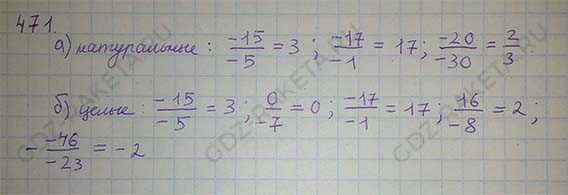 471.
а) натуральные: -15/-5 = 3; -17/-1 = 17; -20/-30 = 2/3.
б) целые: -15/-5 = 3; 0/-7 = 0; -17/-1 = 17; 16/-8 = 2;
- -46/-23 = -2
GDZ-RAKETA.RU
GDZ-RAKETA.RU
GDZ-RAKETA.RU